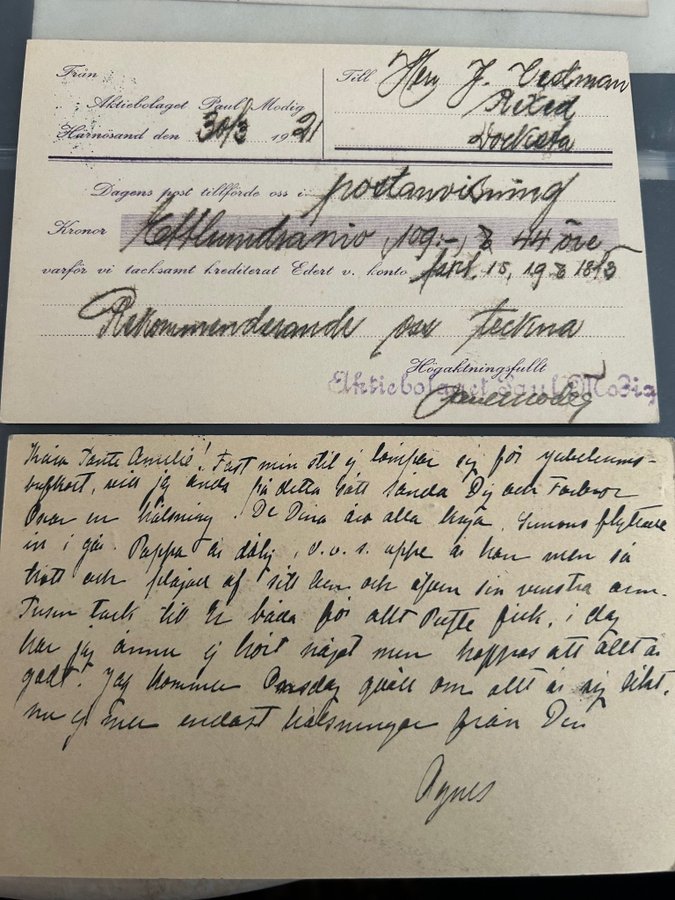 Från
Till Herr J. Vestman
Aktiebolaget Paul Modig
Härnösand den 30/3 1921
Docksta
Dagens post tillförde oss i postanvisning
Kronor Etthundranio, 109:-, & 44 öre
varför vi tacksamt krediterat Edert v. konto 15, 19 & 1815
Rekommenderande oss teckna
Högaktningsfullt
Aktiebolaget Paul Modig
Paul Modig
Kära Tante Amelie! Fast min stil ej lämpar sig för jubileums-
brefkort, vill jag ändå på detta sätt sända Dig och Farbror
Oscar en hälsning. De Dina äro alla krya. Simons flyttade
in i går. Pappa är dålig, d.v.s. uppe är han men så
trött och plågad af sitt ben och äfven sin venstra arm.
Tusen tack till Er båda för allt fick, i dag
har jag ännu ej hört något men hoppas att allt är
godt. Jag kommer Onsdag qväll om allt är sig likt,
nu ej mer endast hälsningar från Din
Agnes